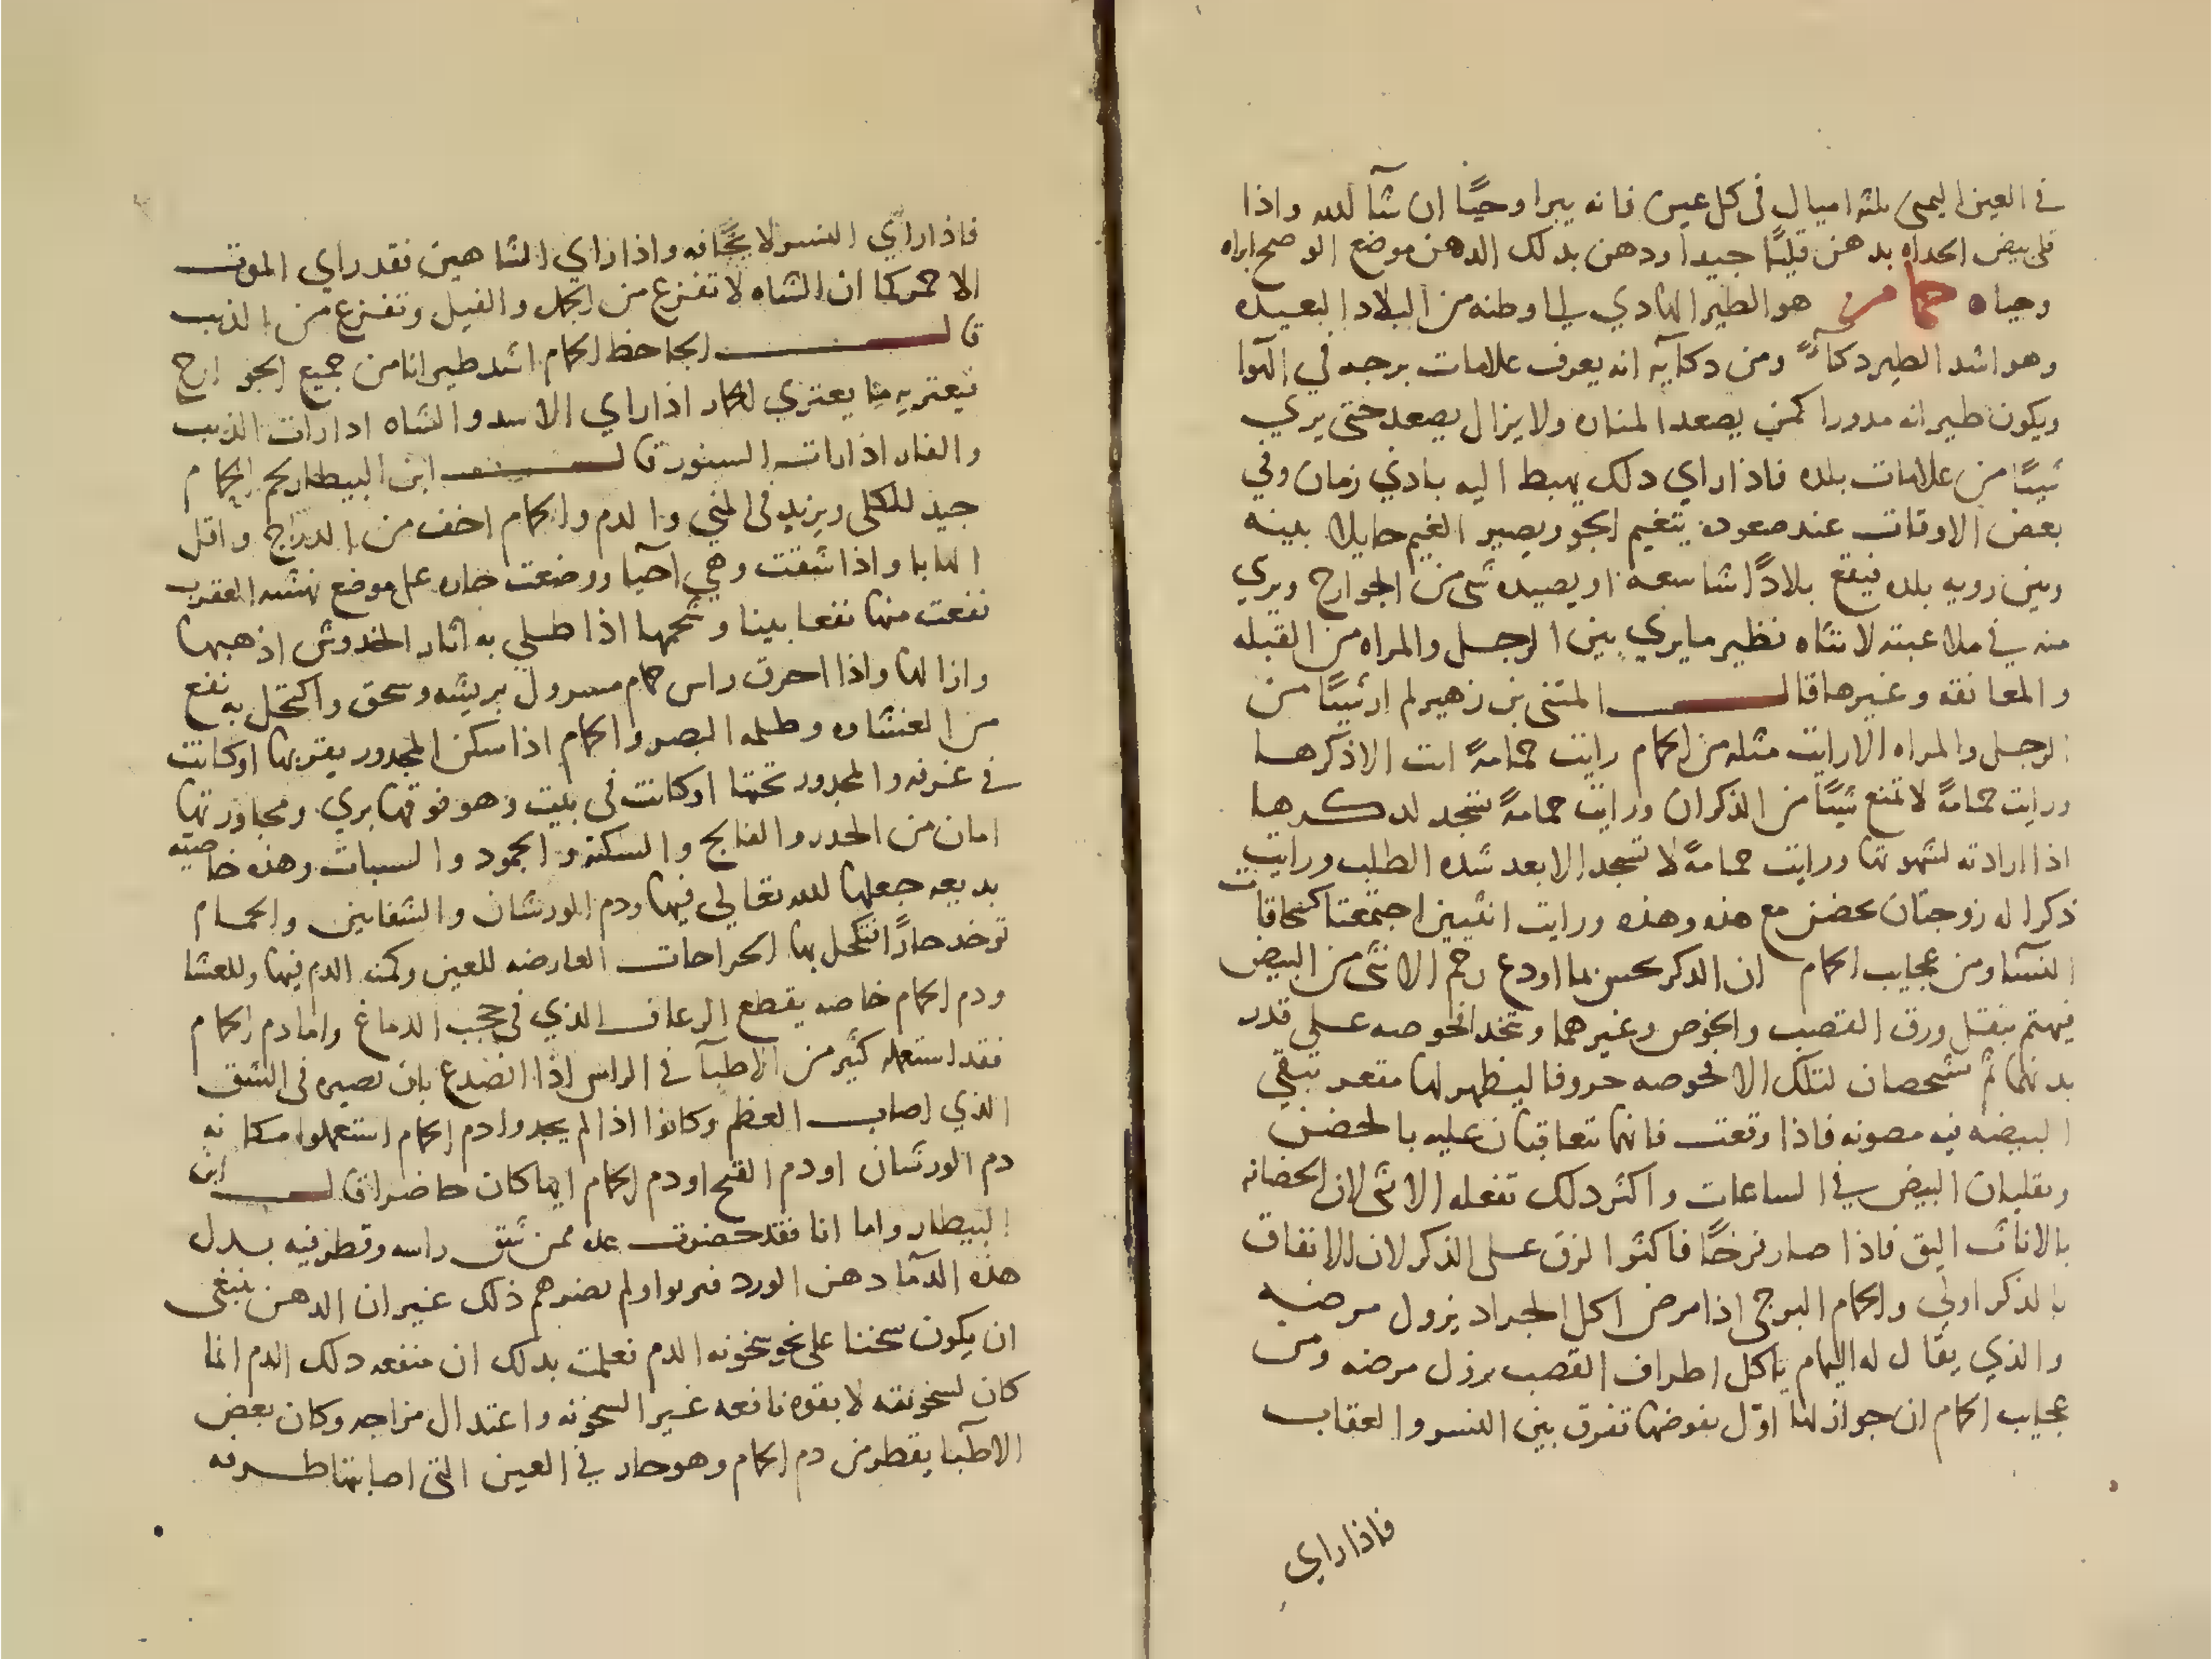 في العين اليمني بلثه اميال في كل عين فانه يبرا وحيًا ان شآ الله واذا
قلي بيض الحداه بدهن قليًا جيدا ودهن بدلك الدهن موضع الوضح ابراه
وحياه حمامه هو الطير الهادي الي اوطنه من البلاد البعيده
وهو اشد الطير دكآً ومن دكايه انه يعرف علامات برجه في الهوا
ويكون طيرانه مدورا كمن يصعد المناره ولا يزال يصعد حتي يري
شيئًا من علامات بلده فاذا راي دلك يهبط اليه بادني زمان وفي
بعض الاوقات عند صعوده يتغيم الجو ويصير الغيم حايلا بينه
وبين رويه بلده فيقع بلادًا شاسعه او يصيده شي من الجوارح ويري
منه في ملاعبته لانثاه نظير ما يري بين الرجل والمراه من القبله
والمعانقه وغيرها قال المثني بن زهير لم ار شيئًا من
الرجل والمراه الا رايت مثله من الحمام رايت حمامةً ابت الا ذكرها
ورايت حمامةً لا تمنع شيئًا من الذكران ورايت حمامةً تسجد لدكرها
اذا ارادته لشهوتها ورايت حمامةً لا تسجد الا بعد شده الطلب ورايت
ذكرا له زوجتان يحضن مع هذه وهذه ورايت انثيين اجتمعتا كسحاقات
النسآ ومن عجايب الحمام ان الدكر يحس بما اودع رحم الانثي من البيض
فيهتم بنقل ورق القصب والخوص وغيرهما ويتخد افحوصه علي قدر
بدنهما ثم يشخصان لتلك الافحوصه حروفا ليظهر لها مقعر تبقي
البيضه فيه مصونه فاذا وقعت فانهما تتعاقبان عليه بالحضن
ويقلبان البيض في الساعات واكثر دلك تفعله الانثي لان الحضانه
بالاناث اليق فاذا صار فرخًا فاكثر الزق علي الذكر لان الانفاق
بالذكر اولي والحمام البرجي اذا مرض اكل الجراد يزول مرضه
والذي يقال له اليمام ياكل اطراف القصب يزل مرضه ومن
عجايب الحمام ان جوازلها اول نهوضها تفرق بين النسر والعقاب
فاذا راي
فاذا راي النسر لا يخافه واذا راي الشاهين فقد راي الموت
الاحمر كما ان الشاه لا تفزع من الجمل والفيل وتفزع من الذيب
قال الجاحظ الحمام اشد طيرانا من جميع الجوارح
فيعتريه ما يعتري الحمار اذا راي الاسد والشاه ادا رات الذيب
والفار اذا رات السنور قال ابن البيطار لحم الحمام
جيد للكلي ويزيد في المني والدم والحمام اخف من الدراج واقل
الهابا واذا شقت وهي احيا ووضعت حاره علي موضع نهشه العقرب
نفعت منها نفعا بينا وشحمها اذا طلي به اثار الخدوش اذهبها
وازالها واذا احرق راس حمام مسرول بريشه وسحق واكتحل به نفع
من الغشاوه وظلمه البصر والحمام اذا سكن المجدور يقربها او كانت
في غرفه والمجدور تحتها او كانت في بيت وهو فوقها بري ومجاورتها
امان من الخدر والفالج والسكته والجمود والسبات وهذه خاصيه
بديعه جعلها الله تعالي فيها ودم الورشان والشفانين والحمام
توخد حارًا تكحل بها الجراحات العارضه للعين وكمنه الدم فيها وللعشا
ودم الحمام خاصه يقطع الرعاف الذي في حجب الدماغ واما دم الحمام
فقد استعمله كثير من الاطبآ في الراس اذا انصدع بان نصيره في الشق
الذي اصاب العظم وكانوا اذا لم يجدوا دم الحمام استعملوا مكانه
دم الورشان او دم القبج او دم الحمام ايها كان حاضرا قال ابن
البيطار واما انا فقد حضرت عده ممن شق راسه وقطر فيه بدل
هذه الدمآ دهن الورد فبروا ولم يضرهم ذلك غير ان الدهن ينبغي
ان يكون سخنا علي نحو سخونه الدم فعلمت بدلك ان منفعه دلك الدم انما
كان لسخونته لا بقوه نافعه غير السخونه واعتدال مزاجه وكان بعض
الاطبآ يقطر من دم الحمام وهو حار في العين التي اصابتها طرفه